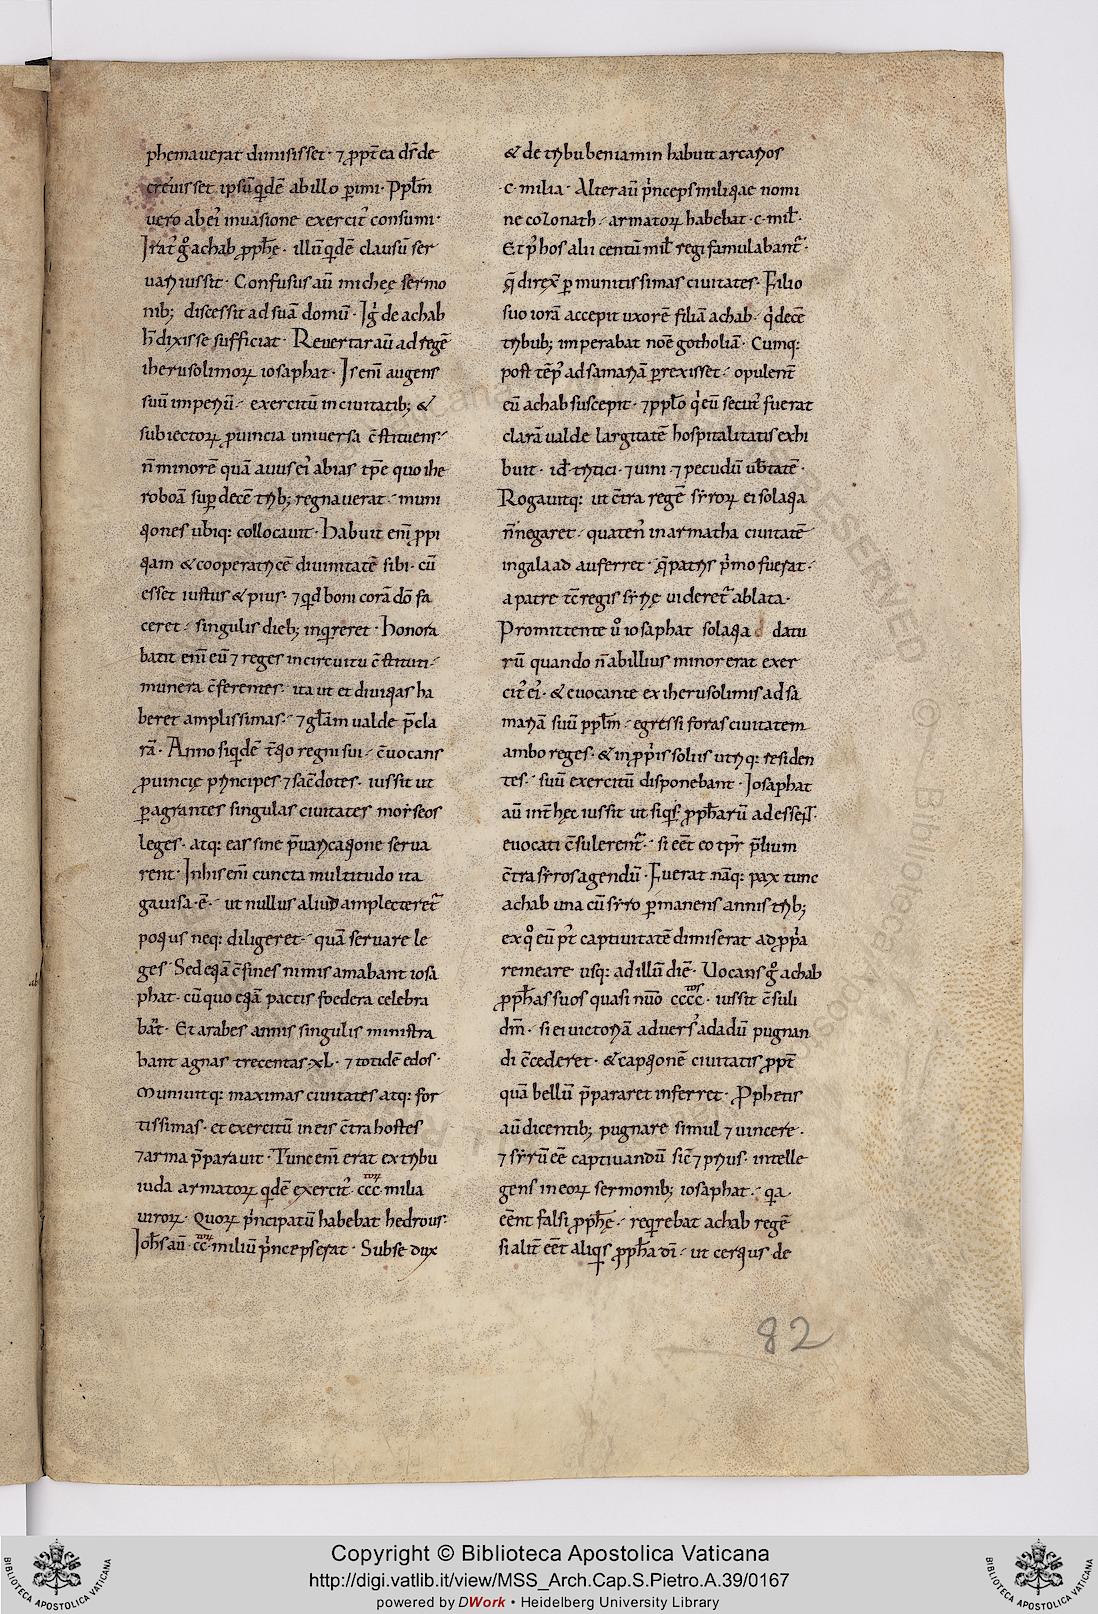 phemauerat dimisisset · ⁊ ꝓpt̄ ea dr̄ de
creuisset ipsū qͥdē ab illo ꝑimi · Ppl̄m
uero ab eiꝰ inuasione exercitꝰ consumi ·
Iratꝰ gͦ achab ꝓph̄ę · illū qͥdē clausū ser
uari iussit · Confusus aū michee sermo
nib; discessit ad suā domū · Igͥ de achab
h̄ dixisse sufficiat · Reuertar aū ad regē
iherusolimoꝝ iosaphat · Is em̄ augens
suū imperiū · exercitū in ciuitatib; &
subiectoꝝ ꝓuincia uniuersa c̄stituens ·
n̄ minorē quā auus eiꝰ abias tp̄e quo ihe
roboā sup̲ decē trib; regnauerat · muni
tiones ubiq: collocauit · Habuit em̄ ꝓpi
tiam & cooperatricē diuinitatē sibi · cū
esset iustus & pius · ⁊ qd̄ boni corā dō fa
ceret · singulis dieb; inqͥreret · Honora
bant em̄ eū ⁊ reges in circuitu c̄stituti ·
munera c̄ferentes · ita ut et diuitias ha
beret amplissimas · ⁊ gl̄am ualde p̄cla
rā · Anno siqͥdē t̄tio regni sui · c̄uocans
ꝓuincię pͥncipes ⁊ sac̄dotes · iussit ut
ꝑagrantes singulas ciuitates moiseos
leges · atq: eas sine p̄uaricatione serua
rent · In his em̄ cuncta multitudo ita
gauisa · ē · ut nullus aliud amplecteret᷑
potius neq: diligeret · quā seruare le
ges · Sed etiā c̄fines nimis amabant iosa
phat · cū quo etiā pactis foedera celebra
bāt · Et arabes annis singulis ministra
bant agnas trecentas · xl · ⁊ totidē edos ·
Muniuitq: maximas ciuitates atq: for
tissimas · et exercitū in eis c̄tra hostes
⁊ arma p̄parauit · Tunc em̄ erat ex tribu
iuda armatoꝝ qͥdē exercitꝰ · ccc · milia
uiroꝝ · Quoꝝ pͥncipatū habebat hedrous ·
Ioh̄s aū · cc · miliū pͥnceps erat · Sub se dux
& de tribu beniamin habuit arcarios
· c · milia · Alter aū pͥnceps militiae nomi
ne colonath · armatoꝝ habebat · c · mil̄ ·
Et p̄ hos alii centū mil̄ regi famulabant᷑ ·
q̄ direx̄ ꝑ munitissimas ciuitates · Filio
suo iorā accepit uxorē filiā achab · qͥ decē
tribub; imperabat noē gotholiā · Cumq:
post tēpꝰ ad samariā ꝑrexisset · opulent̄
eū achab suscepit · ⁊ ppl̄o qͥ eū secutꝰ fuerat
clarā ualde largitatē hospitalitatis exhi
buit · id ē tritici · ⁊ uini · ⁊ pecudū ub̄tatē ·
Rogauitq: ut c̄tra regē sẏroꝝ ei solatia
n̄ negaret · quatenꝰ in armatha ciuitatē
in galaad auferret · q̄ patris pͥmo fuerat ·
a patre t̄c regis sẏrię uideret᷑ ablata ·
Promittente ūͦ iosaphat solatia datu
rū quando n̄ ab illius minor erat exer
citꝰ eiꝰ · & euocante ex iherusolimis ad sa
mariā suū ppl̄m · egressi foras ciuitatem
ambo reges · & in ꝓpͥis soliis utriq: residen
tes · suū exercitū disponebant · Iosaphat
aū int̄ hęc iussit ut siqͥ ꝓph̄arū adesset ·
euocati c̄sulerent᷑ · si eēt eo tpr̄ p̄lium
c̄tra sẏros agendū · Fuerat nāq: pax tunc
achab una cū sẏro ꝑmanens annis trib;
ex qͦ eū p̄t captiuitatē dimiserat ad ꝓpͥa
remeare usq: ad illū diē · Uocans gͦ achab
ꝓph̄as suos quasi nūo cccc · iussit c̄suli
dm̄ · si ei uictoriā aduersꝰ adadū pugnan
di c̄cederet · & captionē ciuitatis ꝓpt̄
quā bellū p̄pararet inferret · Ꝓphetis
aū dicentib; pugnare simul ⁊ uincere ·
⁊ sẏrū eē captiuandū sic̄ ⁊ prius · intelle
gens in eoꝝ sermonib; iosaphat · qͥa
eēnt falsi ꝓph̄ę · reqͥrebat achab regē
si alit̄ eēt aliqͥs ꝓph̄a dī · ut certius de
82
Copyright © Biblioteca Apostolica Vaticana
http://digi.vatlib.it/view/MSS_Arch.Cap.S.Pietro.A.39/0167
powered by DWork • Heidelberg University Library
BIBLIOTECA APOSTOLICA VATICANA
BIBLIOTECA APOSTOLICA VATICANA